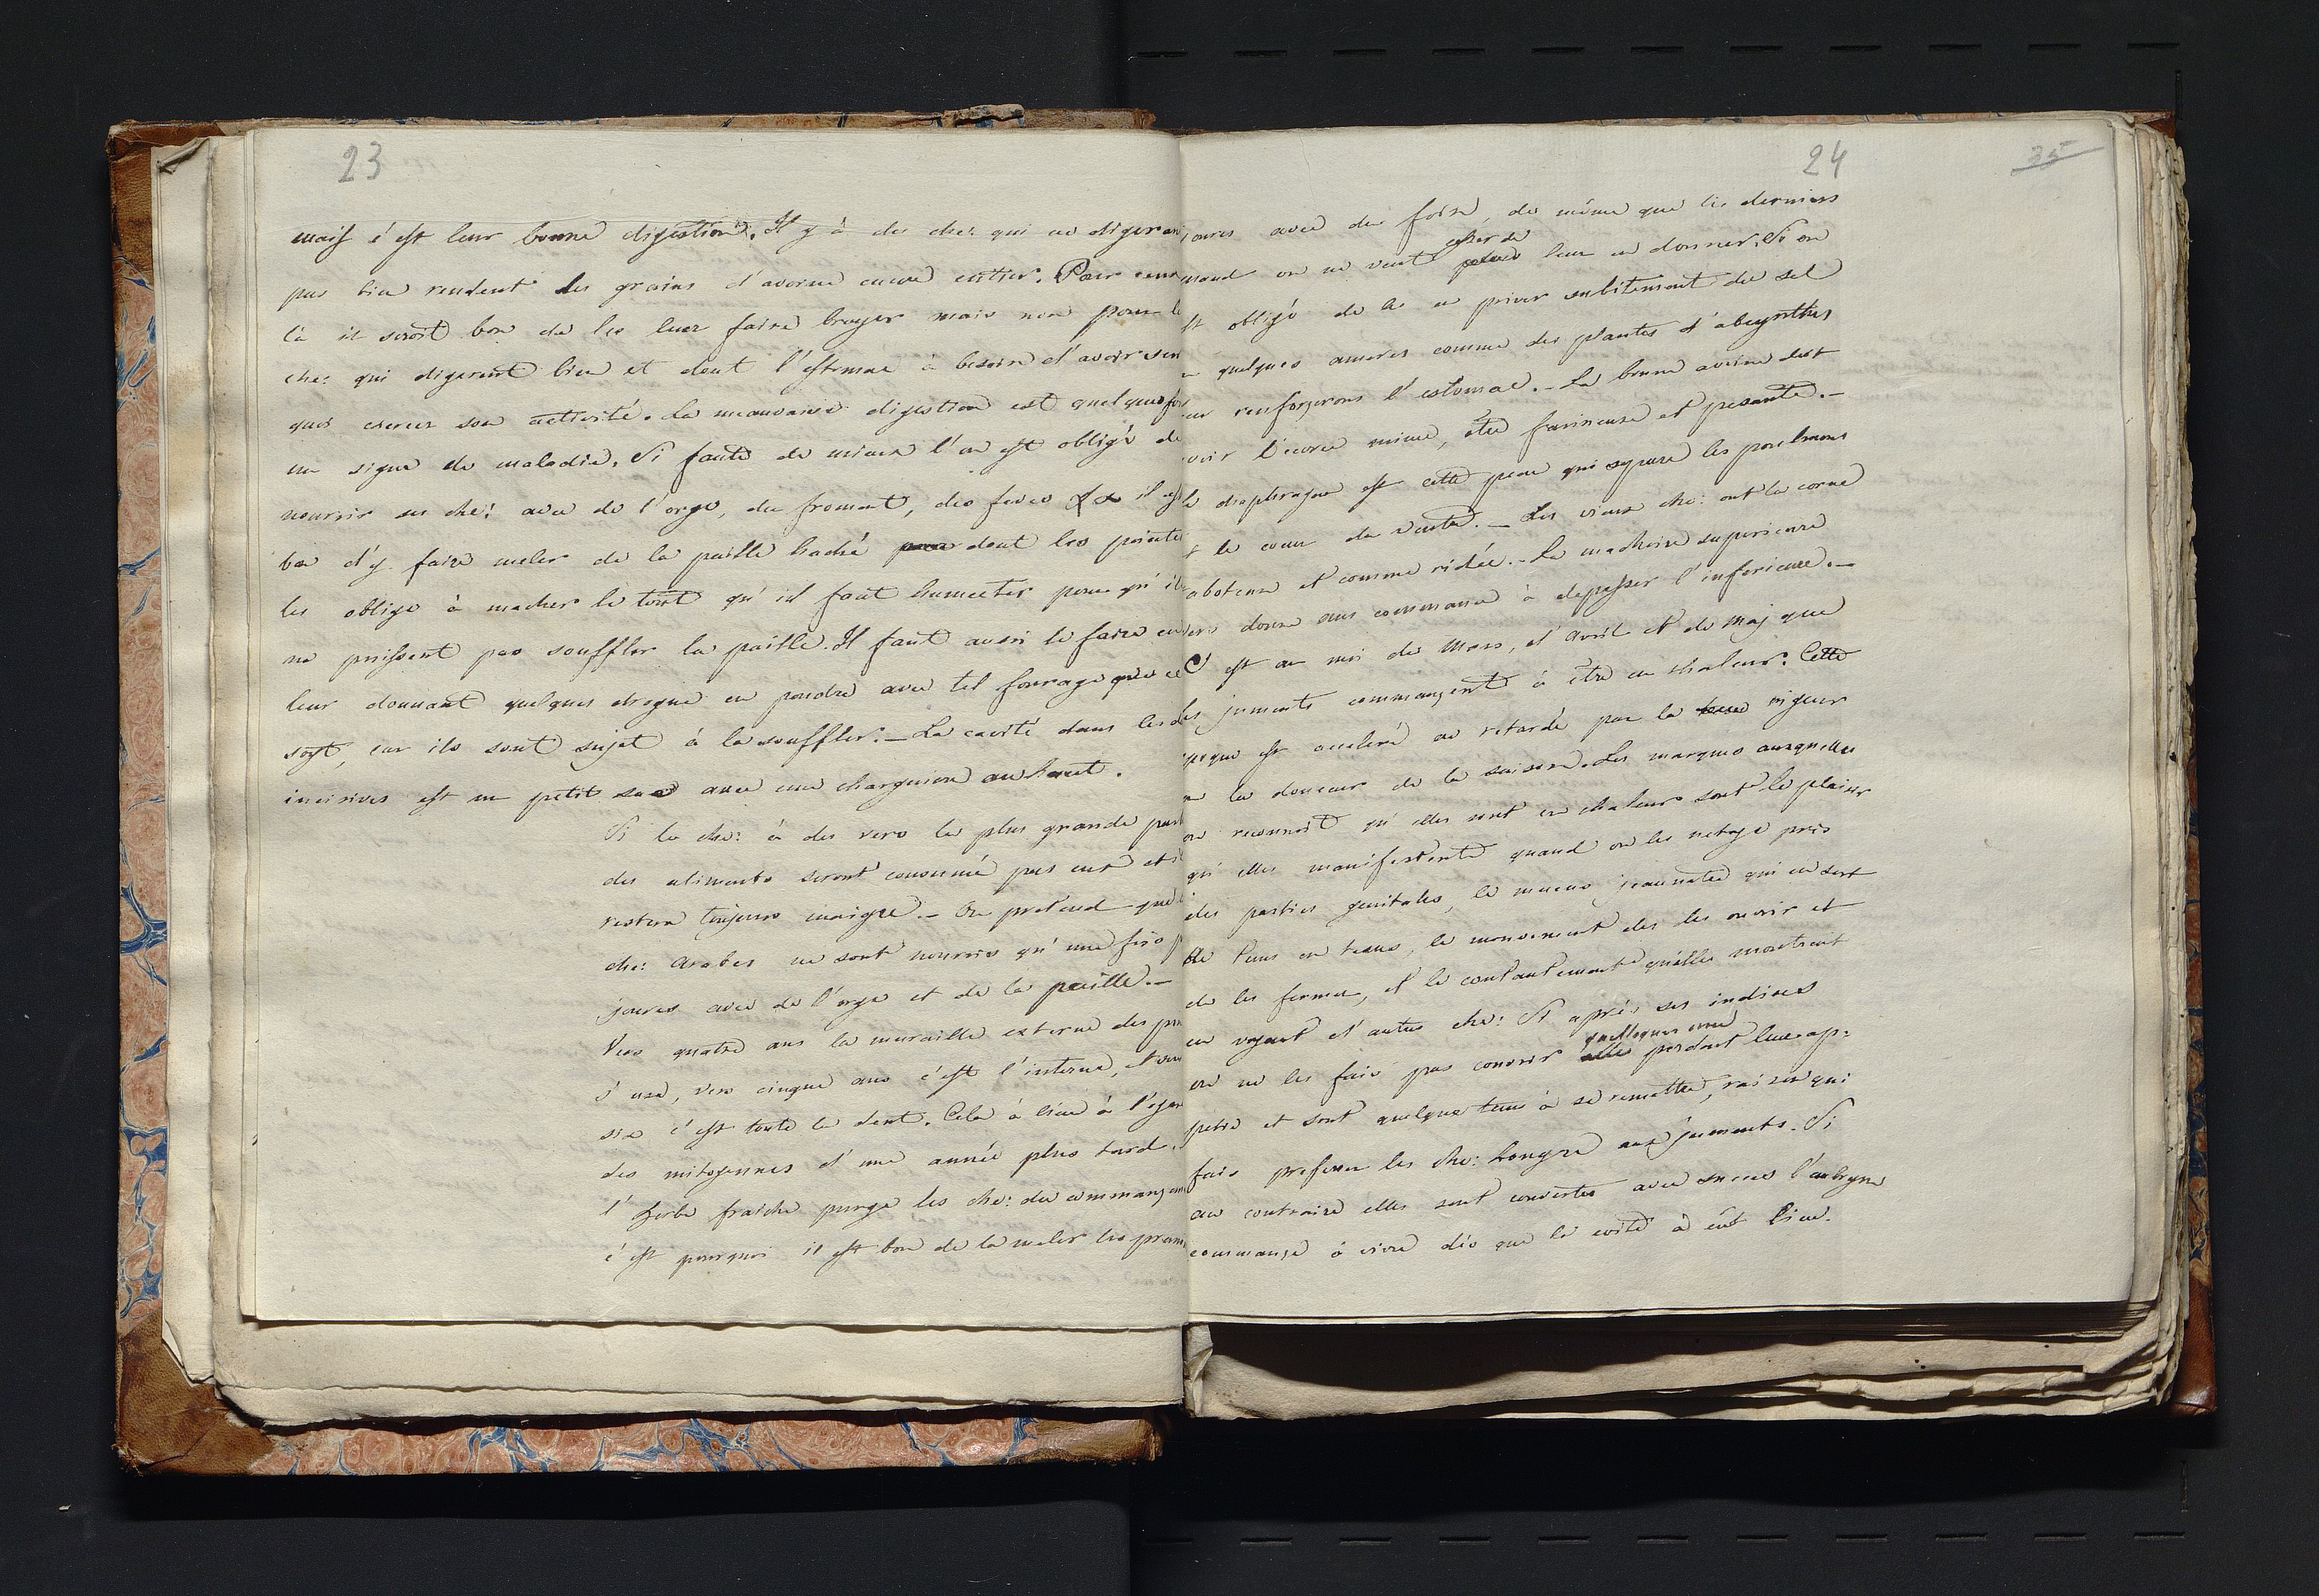 23
mais c'est leur bonne digestion. Il y à des che: qui ne digeran
pas bien rendent les grains d'avoine encore entier. Pour ceux
là il seroit bon de les leur faire broyer mais non pour le
che: qui digerent bien et dont l'estomac à besoin d'avoir sur
quoi exercer son activité. La mauvaise digestion est quelquefois
un signe de maladie. Si faute de mieux l'on est obligé de
nourrir ses che: avec de l'orge, du froment, des feves && il est
bon d'y faire meler de la paille haché dont les pointe
les oblige à macher le tout qu'il faut humecter pour qu'il
ne puissent pas souffler la paille. Il faut aussi le faire en
leur donnant quelques drogue en poudre avec tel fourage que ce
soyt, car ils sont sujet à la souffler. – La cavité dans les
incisives est un petit sac avec une charguiere au haut.
Si le che: à des vers la plus grande part
des aliments seront consummé par eux et il
restera toujours maigre. – On pretend que
che: Arabes ne sont nourris qu'une fois p
joures avec de l'orge et de la paille. –
Vers quatre ans la muraille externe des
s'use, vers cinque ans c'est l'interne, et vers
six c'est toute la dent. Cela à lieu à l'egar
des mitoyennes d'une année plus tard.
l'herbe fraiche purge les che: du commançem
c'est pourquoi il est bon de la meler les prem
24
35
joures avec du foin, de même que les derniers
quand on ne veut cesser de leur en donner. Si on
est obligé de les en priver subitement du sel
quelques ameres comme des plantes d'absynthes
leur renforçerons l'estomac. – La bonne avoine doit
avoir l'écorce mince, être farineuse et pesante. –
le diaphragme est cette peau qui separe les poulmons
et le coeur du ventre. – Les vieux che: ont la corne
raboteuse et comme ridée. – La machoire superieure
vers douze ans commance à depasser l'inferieure. –
C'est au moi de Mars, d'Avril et de Maj que
les juments commançent à être en chaleur. Cette
epoque est acceleré ou retardé par la rigeur
ou la douceur de la saison. Les marques auxquelles
on reconnoit qu'elles sont en chaleur sont le plaisir
qu'elles manifestent quand on les netoye près
des parties genitales, le mucus jeaunatre qui en sort
de tems en tems, le mouvement des les ouvrir et
de les fermer, et le contantement qu'elles montrent
en voyant d'autres che: Si après ses indices
on ne les fais pas couvrir quellques unes perdent leur ap=
petit et sont quelque tems à se remettre, raison qui
fais preferer les che: hongre aux juments. Si
au contraire elles sont couvertes avec succes l'embryon
commançe à vivre dès que le coite à eut lieu.